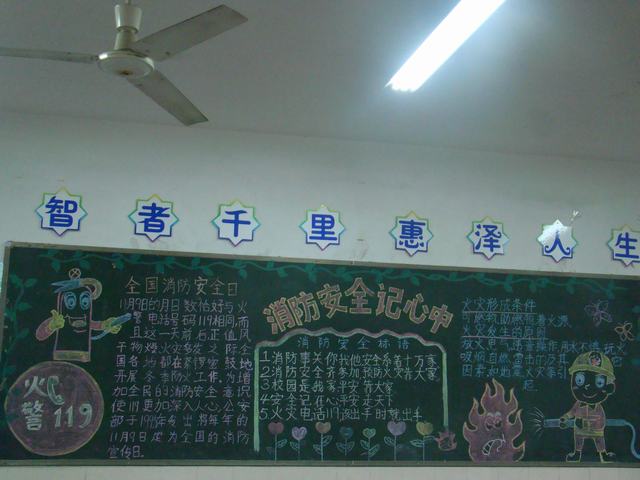 智者千里惠泽人生
全国消防安全日
11月9日的月日数恰好与火
警电话号码119相同,而
且这一天前后正值风
干物燥火灾多发之际全
国各地都在紧锣密鼓地
开展冬季防火工作。为增
加全民的消防安全意识
使"119"更加深入人心公安
部于1992年发出将每年的
11月9日定为全国的消防
宣传日。
火
警119
消防安全记心中
消防安全标语
1消防事关你我他安全系着千万家
2消防安全齐参加预防火灾靠大家
3校园是我家平安靠大家
4安全记在心平安走天下
5火灾电话119该出手时就出手
火灾形成条件
可燃物助燃剂着火源
火灾发生的原因
放火电气违章操作用火不慎玩火
吸烟自燃雷击以及其
因素如地震火灾等引
起